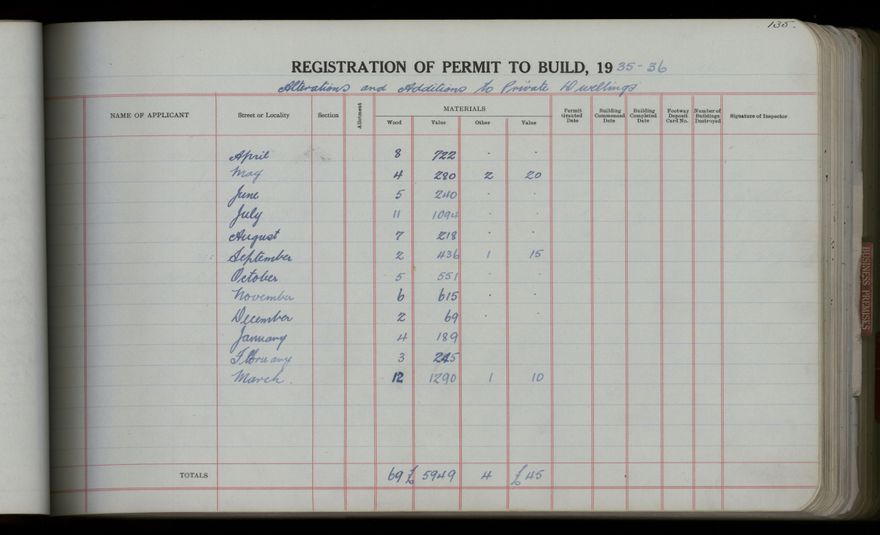 135.
REGISTRATION OF PERMIT TO BUILD, 1935-36
Alterations and Additions to Private Dwellings
NAME OF APPLICANT Street or Locality Section Allotment MATERIALS Permit Granted Date Building Commenced Date Building Completed Date Footway Deposit Card No. Number of Buildings Destroyed Signature of Inspector
Wood Value Other Value
April 8 722 - -
May 4 280 2 20
June 5 240 - -
July 11 1094 - -
August 7 218 - -
September 2 436 1 15
October 5 551 - -
November 6 615 - -
December 2 69 - -
January 4 189
February 3 245
March. 12 1290 1 10
TOTALS 69 £ 5949 4 £45
BUSINESS PREMISES